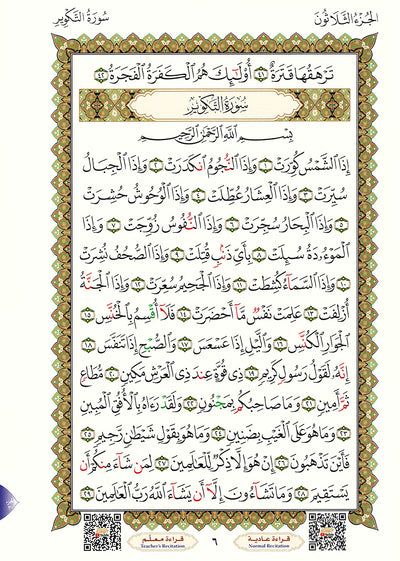 الجزء الثلاثون
سورة التكوير
تَرْهَقُهَا قَتَرَةٌ ٤١ أُوْلَٰٓئِكَ هُمُ ٱلْكَفَرَةُ ٱلْفَجَرَةُ ٤٢
سُورَةُ التَّكْوِيرِ
بِسْمِ ٱللَّهِ ٱلرَّحْمَٰنِ ٱلرَّحِيمِ
إِذَا ٱلشَّمْسُ كُوِّرَتْ ١ وَإِذَا ٱلنُّجُومُ ٱنكَدَرَتْ ٢ وَإِذَا ٱلْجِبَالُ
سُيِّرَتْ ٣ وَإِذَا ٱلْعِشَارُ عُطِّلَتْ ٤ وَإِذَا ٱلْوُحُوشُ حُشِرَتْ
٥ وَإِذَا ٱلْبِحَارُ سُجِّرَتْ ٦ وَإِذَا ٱلنُّفُوسُ زُوِّجَتْ ٧ وَإِذَا
ٱلْمَوْءُۥدَةُ سُئِلَتْ ٨ بِأَيِّ ذَنۢبٍ قُتِلَتْ ٩ وَإِذَا ٱلصُّحُفُ نُشِرَتْ
١٠ وَإِذَا ٱلسَّمَآءُ كُشِطَتْ ١١ وَإِذَا ٱلْجَحِيمُ سُعِّرَتْ ١٢ وَإِذَا ٱلْجَنَّةُ
أُزْلِفَتْ ١٣ عَلِمَتْ نَفْسٌ مَّآ أَحْضَرَتْ ١٤ فَلَآ أُقْسِمُ بِٱلْخُنَّسِ ١٥
ٱلْجَوَارِ ٱلْكُنَّسِ ١٦ وَٱلَّيْلِ إِذَا عَسْعَسَ ١٧ وَٱلصُّبْحِ إِذَا تَنَفَّسَ ١٨
إِنَّهُۥ لَقَوْلُ رَسُولٍ كَرِيمٍ ١٩ ذِي قُوَّةٍ عِندَ ذِي ٱلْعَرْشِ مَكِينٍ ٢٠ مُّطَاعٍ
ثَمَّ أَمِينٍ ٢١ وَمَا صَاحِبُكُم بِمَجْنُونٍ ٢٢ وَلَقَدْ رَءَاهُ بِٱلْأُفُقِ ٱلْمُبِينِ
٢٣ وَمَا هُوَ عَلَى ٱلْغَيْبِ بِضَنِينٍ ٢٤ وَمَا هُوَ بِقَوْلِ شَيْطَٰنٍ رَّجِيمٍ ٢٥
فَأَيْنَ تَذْهَبُونَ ٢٦ إِنْ هُوَ إِلَّا ذِكْرٌ لِّلْعَٰلَمِينَ ٢٧ لِمَن شَآءَ مِنكُمْ أَن
يَسْتَقِيمَ ٢٨ وَمَا تَشَآءُونَ إِلَّآ أَن يَشَآءَ ٱللَّهُ رَبُّ ٱلْعَٰلَمِينَ ٢٩
قراءة عادية
Normal Recitation
٦
قراءة معلم
Teacher's Recitation